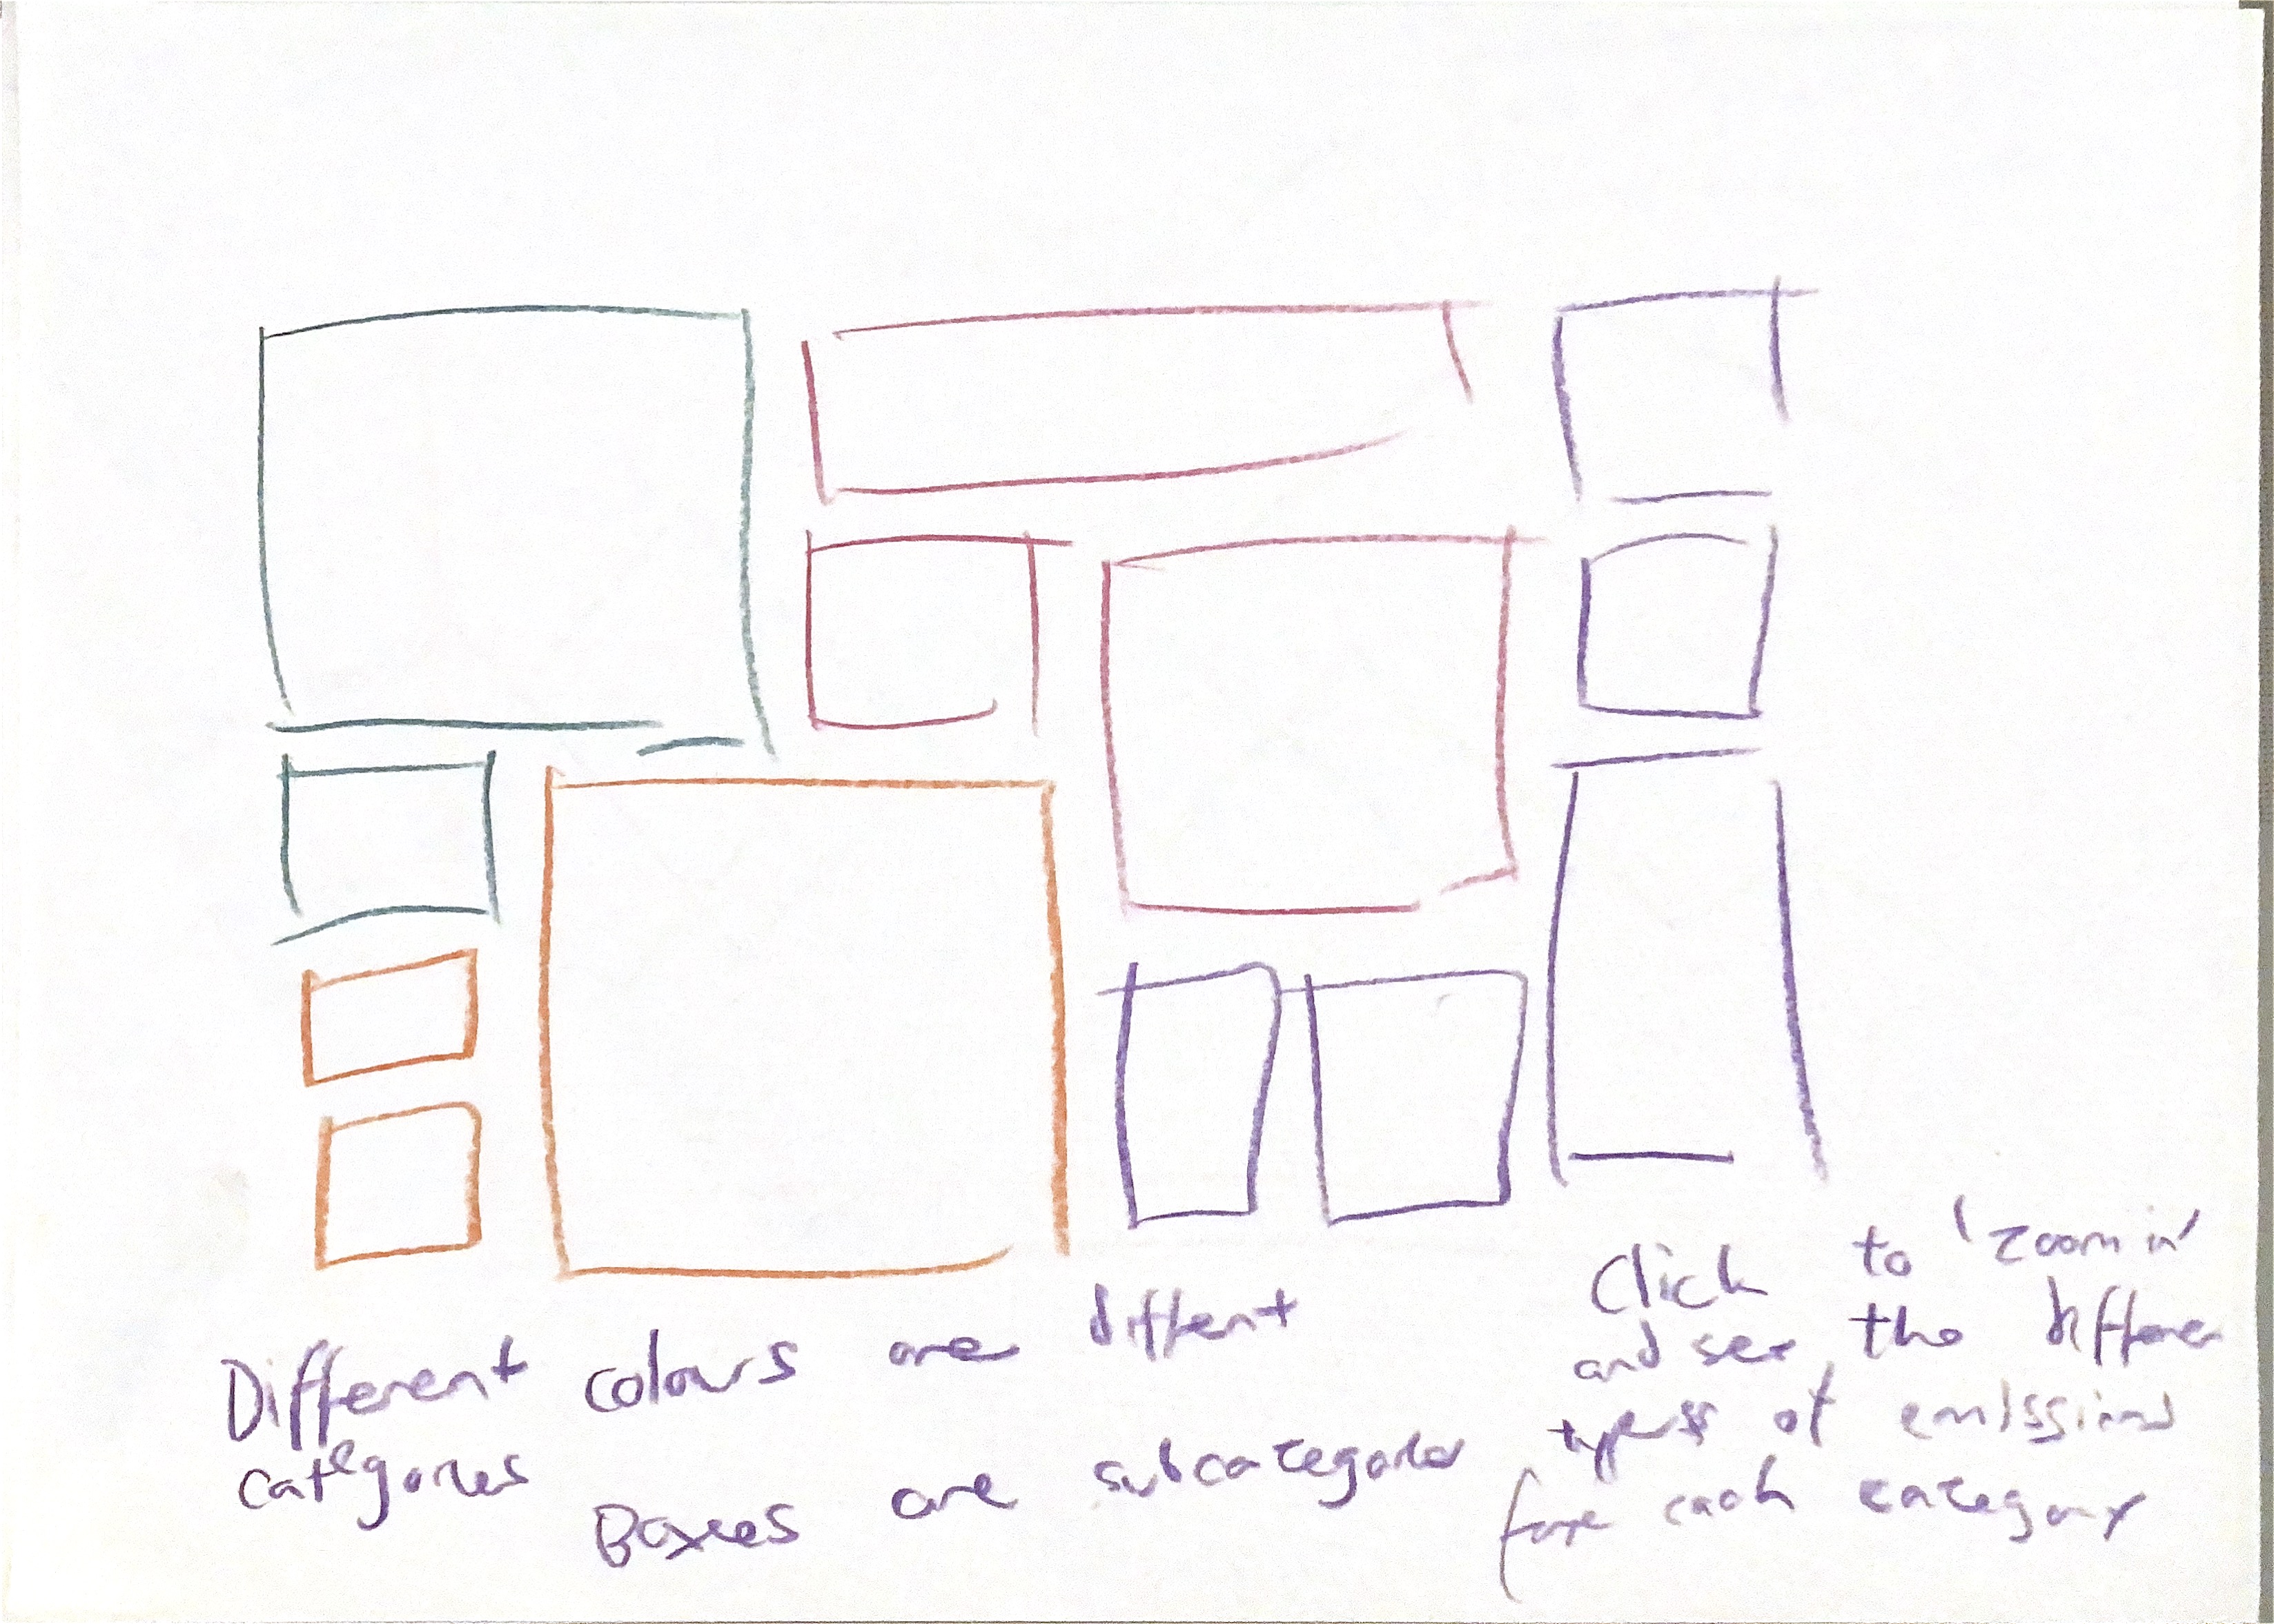 Different colours are diffent
categories
Boxes are subcategories
Click to 'zoom in'
and see, the differen
types of emissions
for each category